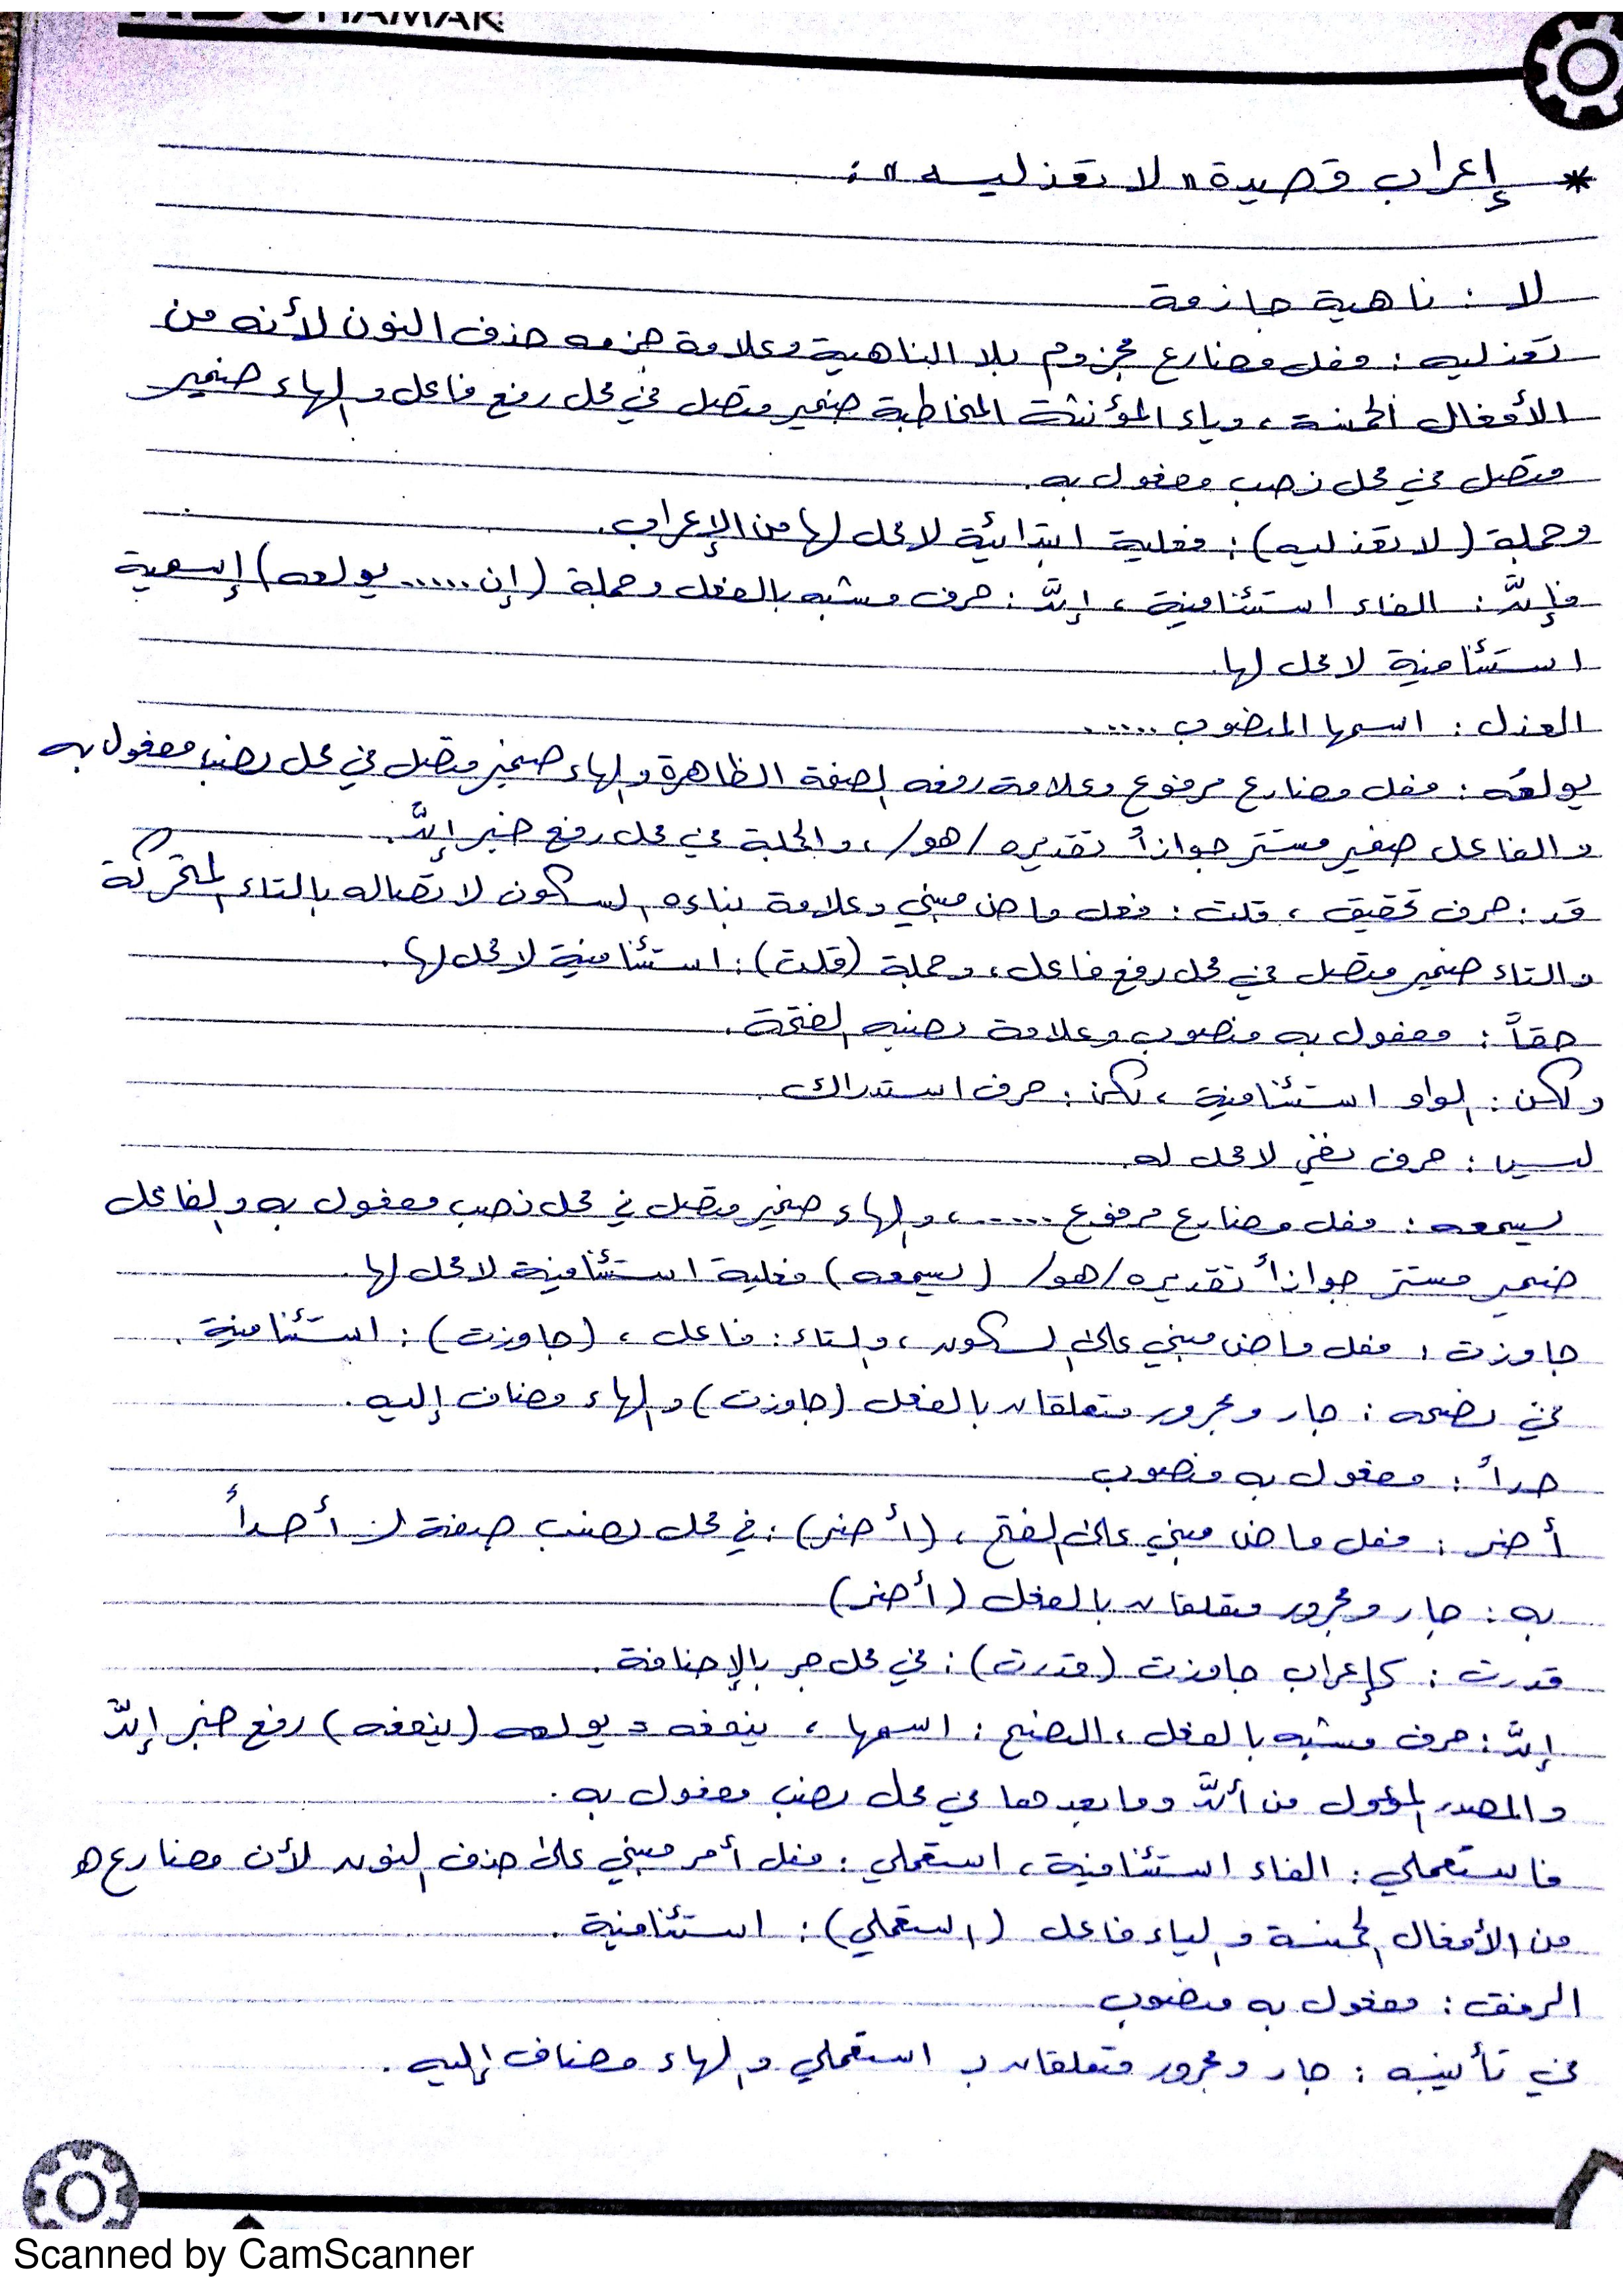 * إعراب قصيدة " لا تعذليه " :
لا : ناهية جازمة
تعذليه : فعل مضارع مجزوم بلا الناهية وعلامة جزمه حذف النون لأنه من
الأفعال الخمسة ، وياء المؤنثة المخاطبة ضمير متصل في محل رفع فاعل والهاء ضمير
متصل في محل نصب مفعول به .
وجملة (لا تعذليه) : فعلية ابتدائية لا محل لها من الإعراب .
فإنَّ : الفاء استئنافية ، إنَّ : حرف مشبه بالفعل وجملة (إن ..... يولعه) إسمية
استئنافية لا محل لها .
العذل : اسمها المنصوب .....
يولعُه : فعل مضارع مرفوع وعلامة رفعه الضمة الظاهرة والهاء ضمير متصل في محل نصب مفعول به
والفاعل ضمير مستتر جوازاً تقديره /هو/ ، والجملة في محل رفع خبر إنَّ .
قد : حرف تحقيق ، قلت : فعل ماض مبني وعلامة بناءه السكون لاتصاله بالتاء المتحركة
والتاء ضمير متصل في محل رفع فاعل ، وجملة (قلت) : استئنافية لا محل لها .
حقاً : مفعول به منصوب وعلامة نصبه الفتحة .
ولكن : الواو استئنافية ، لكن : حرف استدراك .
ليس : حرف نفي لا محل له .
يسمعه : فعل مضارع مرفوع ..... ، والهاء ضمير متصل في محل نصب مفعول به والفاعل
ضمير مستتر جوازاً تقديره /هو/ (يسمعه) فعلية استئنافية لا محل لها .
جاوزت : فعل ماض مبني على السكون ، والتاء : فاعل ، (جاوزت) : استئنافية .
في نصحه : جار ومجرور متعلقان بالفعل (جاوزت) والهاء مضاف إليه .
حداً : مفعول به منصوب
أضر : فعل ماض مبني على الفتح ، (أضر) : في محل نصب صفة لـ أحداً
به : جار ومجرور متعلقان بالفعل (أضر)
قدرت : كإعراب جاوزت (قدرت) : في محل جر بالإضافة .
إنَّ : حرف مشبه بالفعل ، النصح : اسمها ، ينفعه = يولعه (ينفعه) رفع خبر إنَّ
والمصدر المؤول من أنَّ وما بعدها في محل نصب مفعول به .
فاستعملي : الفاء استئنافية ، استعملي : فعل أمر مبني على حذف النون لأن مضارعه
من الأفعال الخمسة والياء فاعل (استعملي) : استئنافية .
الرفق : مفعول به منصوب
في تأنيبه : جار ومجرور متعلقان بـ استعملي والهاء مضاف إليه .
Scanned by CamScanner